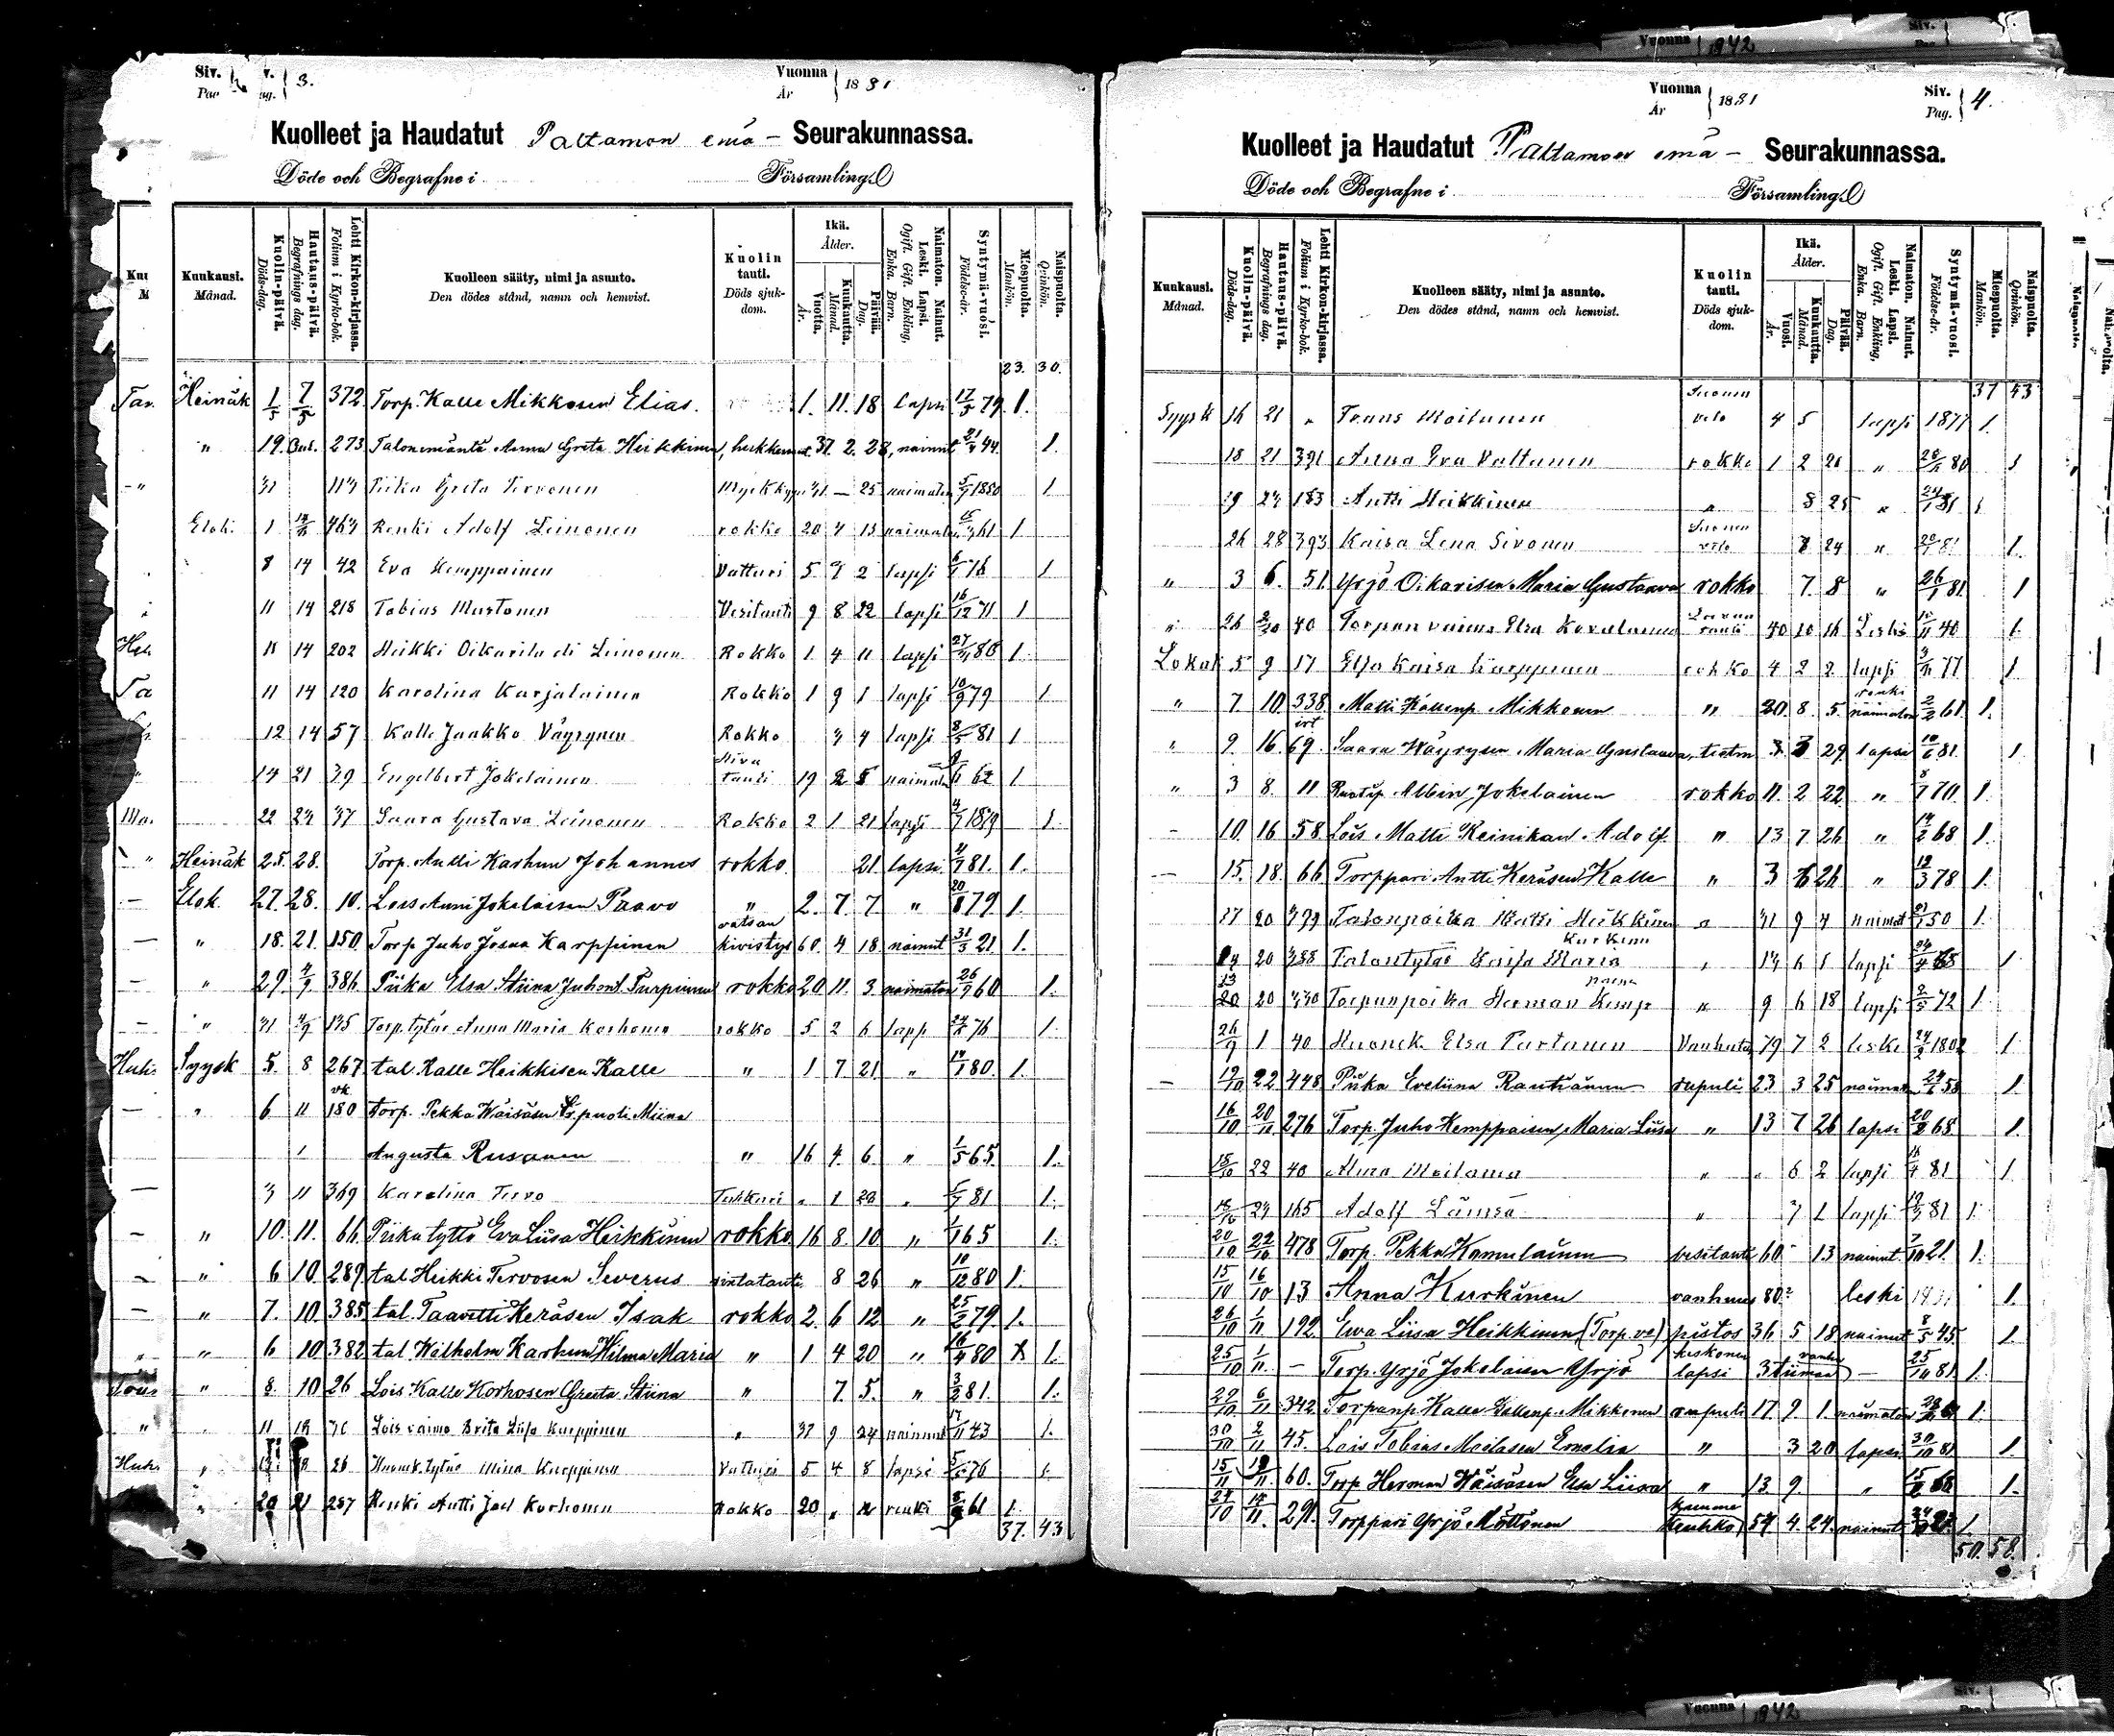 Vuonna 1942
Siv. Pag. 3.
Vuonna År 1881
Kuolleet ja Haudatut Paltamon emä – Seurakunnassa.
Döde och Begrafne i Församling.
Kuukausi. Månad.
Kuolin-päivä. Döds-dag.
Hautaus-päivä. Begrafnings dag.
Lehti Kirkon-kirjassa. Folium i Kyrko-bok.
Kuolleen sääty, nimi ja asunto. Den dödes stånd, namn och hemvist.
Kuolin tauti. Döds sjukdom.
Ikä. Ålder.
Vuotta. År.
Kuukautta. Månad.
Päivää. Dag.
Naimaton. Nainut. Leski. Lapsi. Ogift. Gift. Enkling. Enka. Barn.
Syntymä-vuosi. Födelse-år.
Miespuolta. Mankön.
Naispuolta. Qvinkön.
23. 30.
Heinäk 1/5 7/5 372 Torp. Kalle Mikkosen Elias. 1. 11. 18 lapsi 17/5 79. 1.
" 19. 273. Talonemäntä Anna Greta Heikkinen, 37. 2. 28, nainut 44. 1.
31 113 Piika Greta Tervonen 25 naimaton 1.
Elok. 1 463 Renki Adolf Leinonen rokko 20 4 13 naimaton 61 1
8 14 42 Eva Kemppainen Vatturi 5 2 lapsi 76 1
11 14 218 Tobias Mustonen Vesitauti 9 8 22 lapsi 16/12 71 1
11 14 202 Heikki Oikarila di Leinonen Rokko 1 4 11 lapsi 80 1.
11 14 120 Karolina Karjalainen Rokko 1 9 1 lapsi 10/9 79 1.
12 14 57 Kalle Jaakko Väyrynen Rokko 3 4 lapsi 8/5 81 1
14 21 39 Engelbert Jokelainen tauti 19 2 5 naimaton 62 1
22 24 37 Saara Gustava Leinonen Rokko 2 1 21 lapsi 1879 1.
Heinäk 25. 28. Torp. Antti Karhun Johannes rokko. 21 lapsi 4/7 81. 1.
Elok 27. 28. 10. Lois Anni Jokelaisen Paavo " 2. 7. 7. " 20 79. 1.
" 18. 21. 150. Torp. Juho Josua Karppinen vatsan kivistys 60. 4 18 nainut 31/3 21 1.
" 29. 4/9 386 Piika Elsa Stiina Juhont. Turpeinen rokko 20 11. 3. naimaton 26/9 60 1.
" 31 4/9 135 Torp. tytär Anna Maria Korhonen rokko 5 2 6 lapsi 76 1.
Syysk 5. 8 267 tal. Kalle Heikkisen Kalle " 1 7 21. " 14/1 80. 1.
" 6 11 180 torp. Pekka Wäisäsen puoli Miina
Augusta Rusanen " 16 4. 6. " 1/5 65. 1.
3 11 369 Karolina Tervo 1 " 81 1.
" 10. 11. 66 Piika tyttö Eva Liisa Heikkinen rokko 16 8. 10 " 65 1.
" 6 10 289 tal Heikki Tervosen Severus rintatauti 8 26 " 10/12 80 1.
" 7. 10. 385 tal. Taavetti Keräsen Isak rokko 2. 6 12 " 25/2 79. 1.
" 6 10 382 tal. Wilhelm Karhun Hilma Maria " 1 4 20 " 16/4 80 1.
" 8. 10 26 Lois Kalle Korhosen Greeta Stiina " 7. 5. " 3/2 81. 1.
11 Lois vaimo Brita Liisa Karppinen " 37 9 24 nainut 17/11 43 1.
26 tytär Miina Karppinen Vatturi 5 4 8 lapsi 76 1.
20 21 257 Renki Antti Joel Korhonen Rokko 20 renki 61 1.
37. 43
Vuonna År 1881
Siv. Pag. 4.
Kuolleet ja Haudatut Paltamon emä – Seurakunnassa.
Döde och Begrafne i Församling.
Kuukausi. Månad.
Kuolin-päivä. Döds-dag.
Hautaus-päivä. Begrafnings dag.
Lehti Kirkon-kirjassa. Folium i Kyrko-bok.
Kuolleen sääty, nimi ja asunto. Den dödes stånd, namn och hemvist.
Kuolin tauti. Döds sjukdom.
Ikä. Ålder.
Vuosi. År.
Kuukautta. Månad.
Päivää. Dag.
Naimaton. Nainut. Leski. Lapsi. Ogift. Gift. Enkling, Enka. Barn.
Syntymä-vuosi. Födelse-år.
Miespuolta. Mankön.
Naispuolta. Qvinkön.
37 43
Syysk 16 21 " Frans Moilanen Suonen veto 4 5 lapsi 1877 1.
18 21 391 Anna Eva Valtanen rokko 1 2 " 80 1
19 24 183 Antti Heikkinen " 8 25 " 81 1
26 28 393 Kaisa Lena Sivonen Suonen veto 8 24 " 81 1.
" 3 6. 51. Yrjö Oikarisen Maria Gustaava rokko 7. 8 " 26/1 81. 1
" 26 40 Torpan vaimo Elsa Kovalainen tauti 40 10 16 Leski 40 1.
Lokak 5 9 17 Elsa Kaisa Karppinen rokko 4 2 2 lapsi 77 1
" 7. 10. 338 Matti Kallenp. Mikkonen " 20. 8 5. renki naimaton 2/2 61. 1.
" 9. 16 69. Saara Wäyrysen Maria Gustaava, 3 29 lapsi 10/6 81. 1
" 3 8. 11 Albin Jokelainen rokko 11. 2 22 " 8/7 70. 1.
10. 16 58. Lois Matti Reinikan Adolf " 13 7. 26 " 14/2 68 1.
15. 18. 66 Torppari Antti Keräsen Kalle " 3 6 26 " 78 1.
17 20 379 Talonpoika Matti Heikkinen " 31 9 4 naimat 50 1.
20 388 Talontytär Kaisa Maria Kurkinen " 13 6 lapsi 1
20 330 Torpanpoika Herman Kemppainen " 9 6 18 lapsi 72 1
26/9 1 40 Huonek. Elsa Partanen Vanhuus 79 7 2 leski 1802 1
19/10 22 448 Piika Eveliina Rautiainen rupuli 23 3 25 naimaton 58 1.
16/10 20/11 276 Torp. Juho Kemppaisen Maria Liisa " 13 7 26 lapsi 20/2 68 1.
15/10 22 40 Moilanen " 6 2 lapsi 81 1
24 165 Adolf Lämsä " 3 1 lapsi 81 1
20/10 22/10 478 Torp. Pekka Komulainen vesitauti 60 13 nainut 7/10 21. 1.
15/10 16/10 13 Anna Kurkinen vanhuus 80? leski 1.
26/10 1/11 192 Ewa Liisa Heikkinen (Torp. va) pistos 36 5 18 nainut 8/5 45 1
25/10 1/11 – Torp. Yrjö Jokelaisen Yrjö keskonen lapsi 3 tiiman vanha – 25/10 81 1.
29/10 6/11 342 Torpanp. Kalle Kallenp. Mikkonen rupuli 17. 9. 1. naimaton 1.
30/10 2/11 45. Lois Tobias Moilasen Emelia " 3 20 lapsi 30/10 81 1.
15/11 60. Torp Herman Wäisäsen Elsa Liisa " 13 9 " 68 1.
27/10 291. Torppari Yrjö Möttönen 54 4. 24. nainut 1.
50. 58.
Vuonna 1942